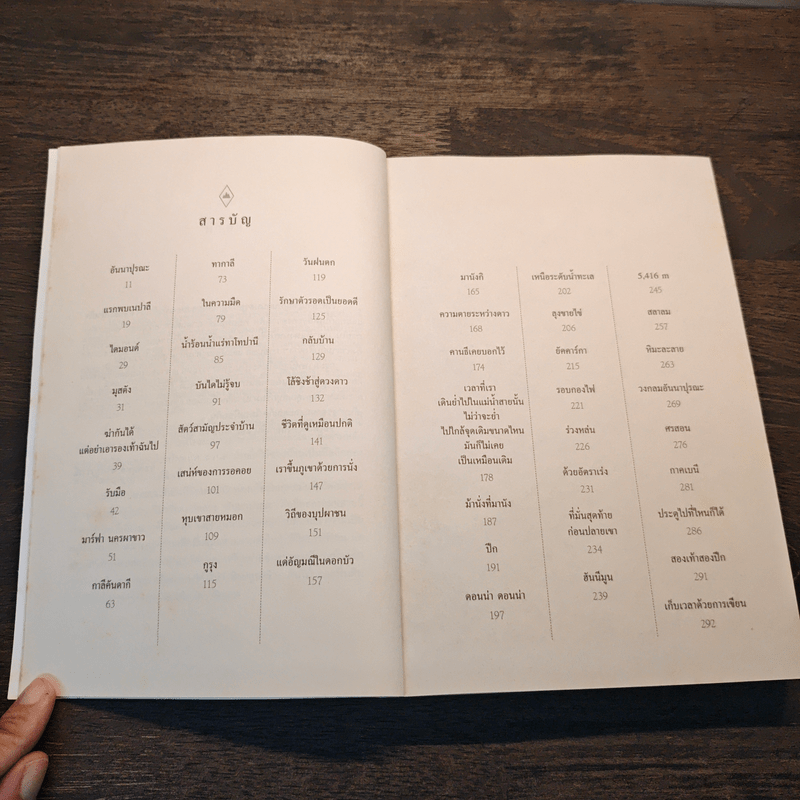 สารบัญ
อันนาปุรณะ
11
แรกพบเนปาลี
19
ไดมอนด์
29
มุสตัง
31
ฆ่ากันได้
แต่อย่าเอารองเท้าฉันไป
39
รับมือ
42
มาร์ฟา นครผาขาว
51
กาลีคันดากี
63
ทากาลี
73
ในความมืด
79
น้ำร้อนน้ำแร่ทาโทปานี
85
บันไดไม่รู้จบ
91
สัตว์สามัญประจำบ้าน
97
เสน่ห์ของการรอคอย
101
หุบเขาสายหมอก
109
กูรุง
115
วันฝนตก
119
รักษาตัวรอดเป็นยอดดี
125
กลับบ้าน
129
โล้ชิงช้าสู่ดวงดาว
132
ชีวิตที่ดูเหมือนปกติ
141
เราขึ้นภูเขาด้วยการนั่ง
147
วิถีของบุปผาชน
151
แด่อัญมณีในดอกบัว
157
มานังกิ
165
ความตายระหว่างดาว
168
คานธีเคยบอกไว้
174
เวลาที่เรา
เดินย่ำไปในแม่น้ำสายนั้น
ไม่ว่าจะย่ำ
ไปใกล้จุดเดิมขนาดไหน
มันก็ไม่เคย
เป็นเหมือนเดิม
178
ม้านั่งที่มานัง
187
ปีก
191
ดอนน่า ดอนน่า
197
เหนือระดับน้ำทะเล
202
ลุงขายไข่
206
อัคคาร์กา
215
รอบกองไฟ
221
ร่วงหล่น
226
ด้วยอัตราเร่ง
231
ที่มั่นสุดท้าย
ก่อนปลายเขา
234
ฮันนีมูน
239
5,416 m
245
สลาลม
257
หิมะละลาย
263
วงกลมอันนาปุรณะ
269
ศรสอน
276
กาคเบนี
281
ประตูไปที่ไหนก็ได้
286
สองเท้าสองปีก
291
เก็บเวลาด้วยการเขียน
292